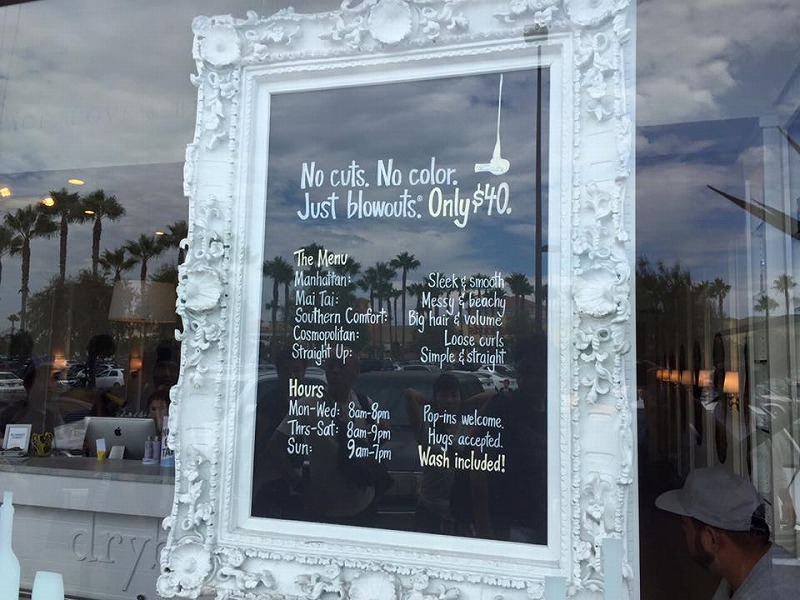 No cuts. No color.
Just blowouts.® Only $40.
The Menu
Manhattan: Sleek & smooth
Mai Tai: Messy & beachy
Southern Comfort: Big hair & volume
Cosmopolitan: Loose curls
Straight Up: Simple & straight
Hours
Mon-Wed: 8am-8pm
Thrs-Sat: 8am-9pm
Sun: 9am-7pm
Pop-ins welcome.
Hugs accepted.
Wash included!